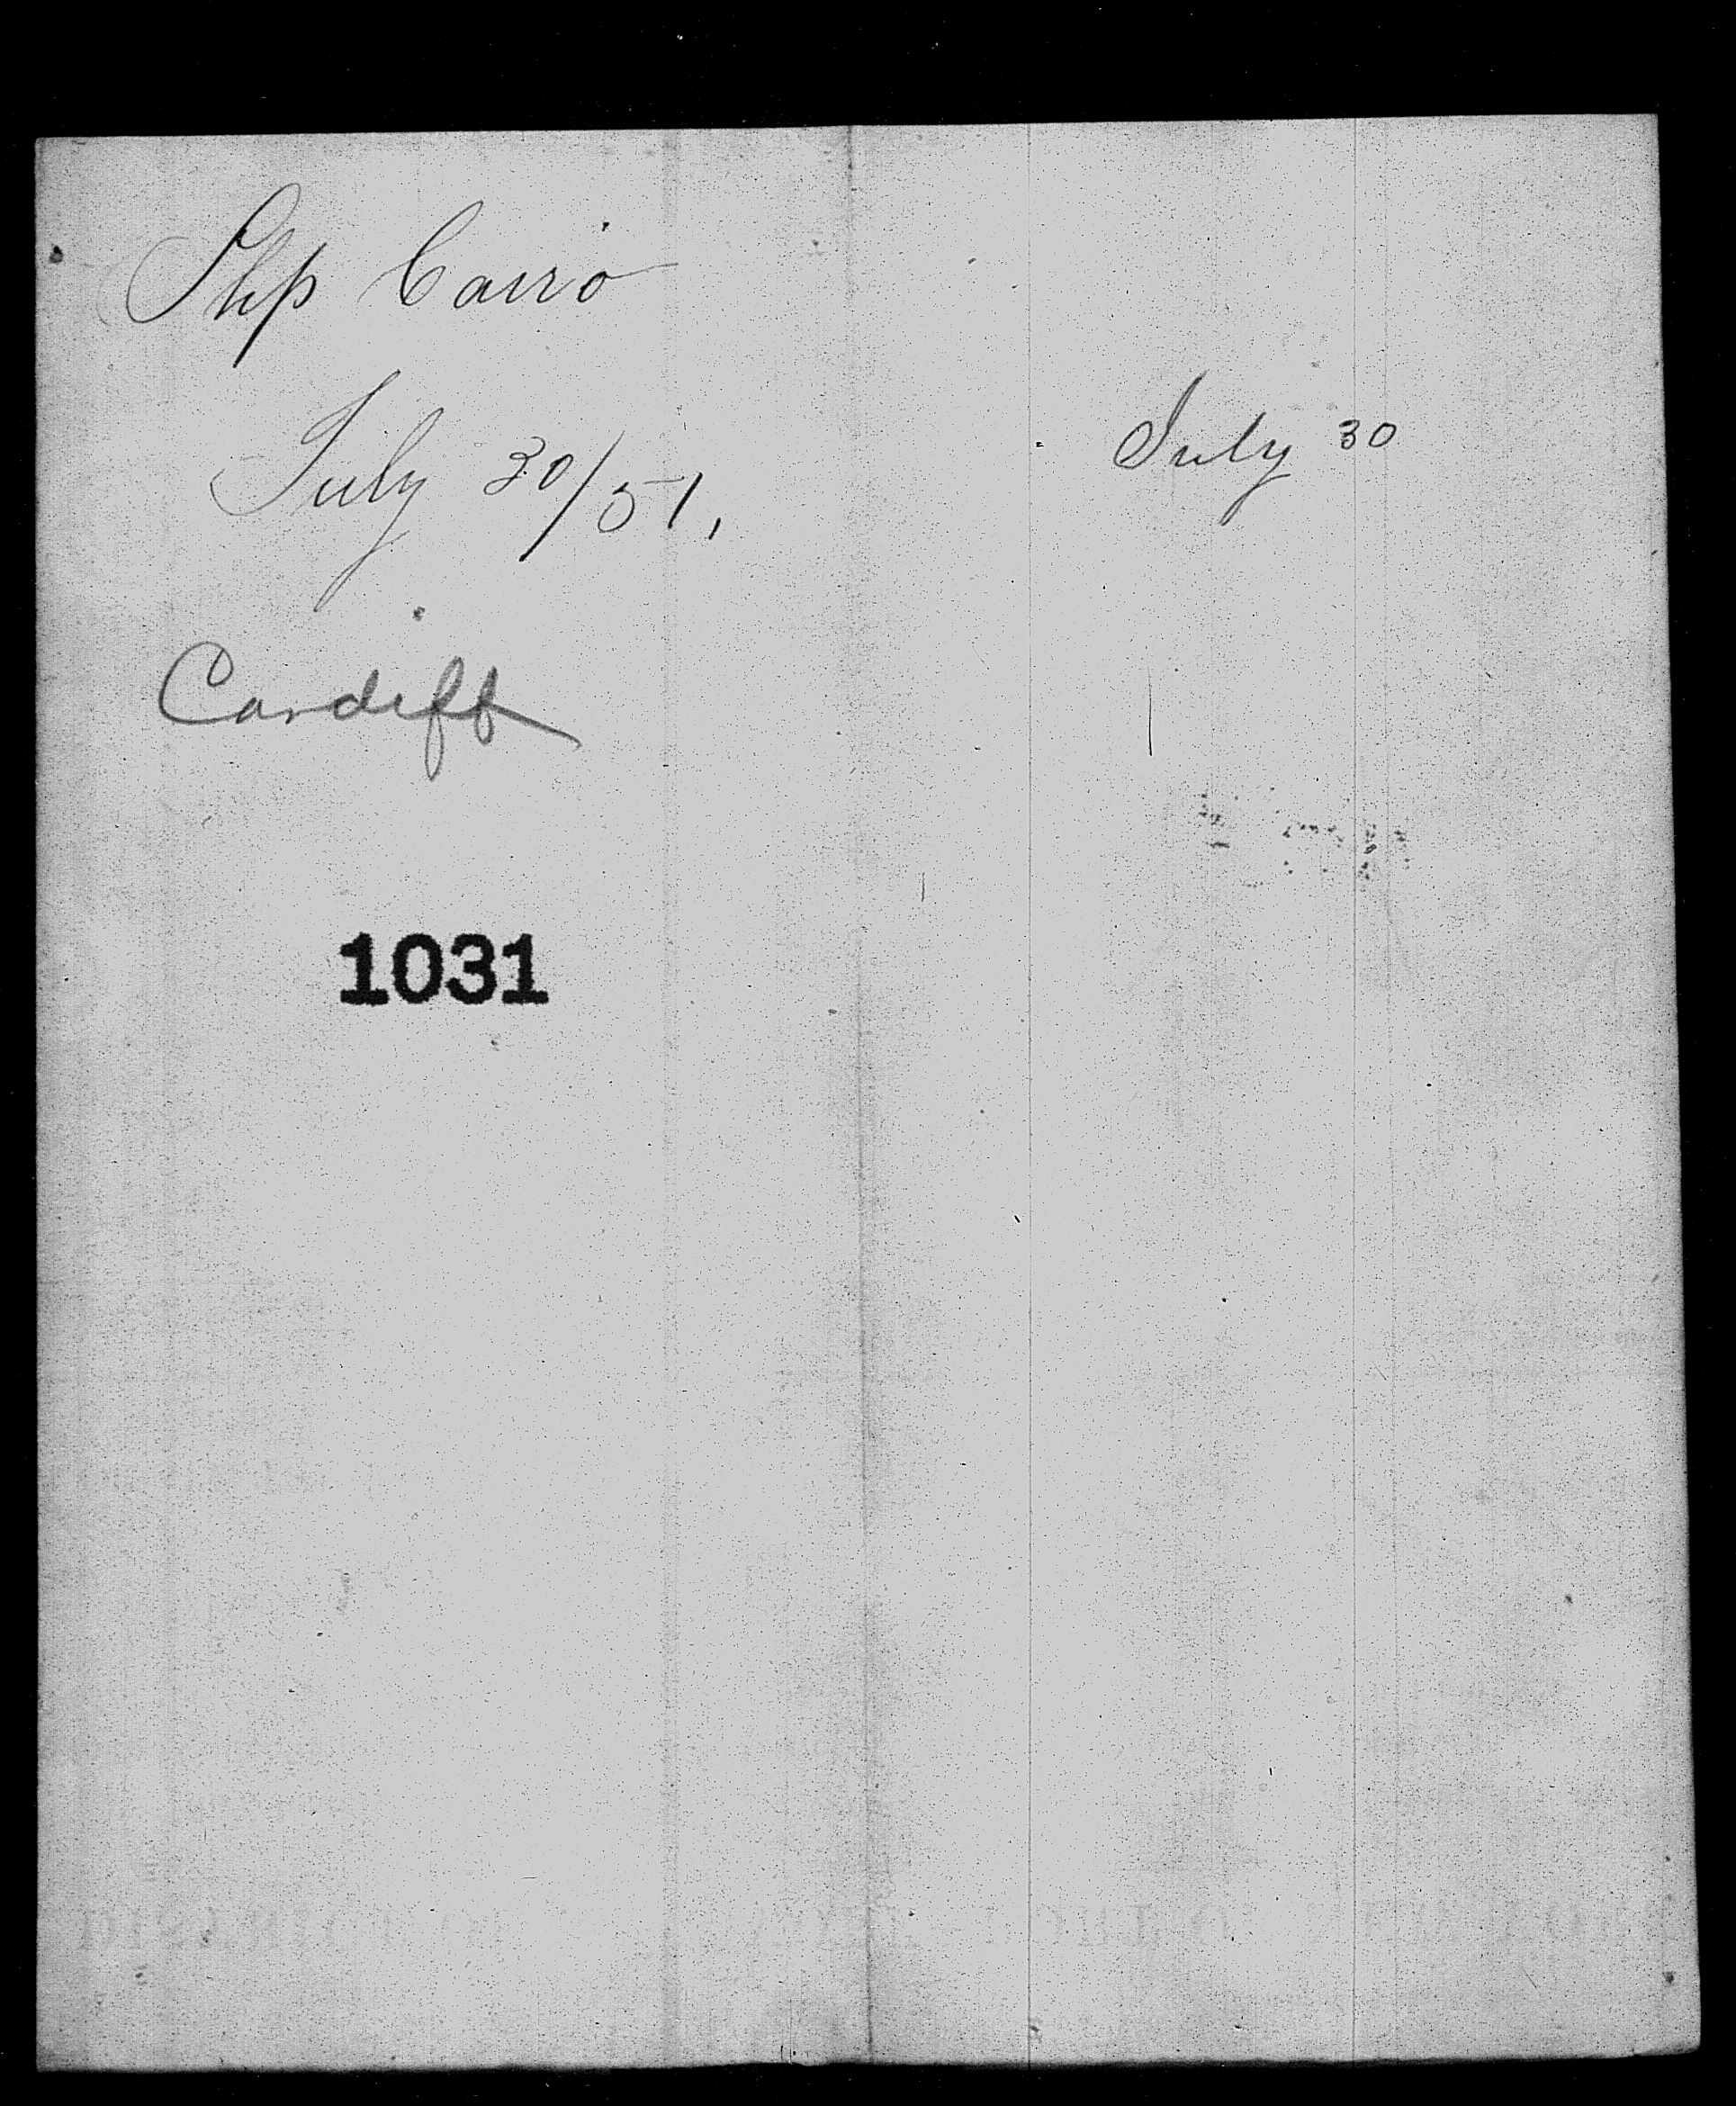 Ship Cairo
July 30/51,
Cardiff
1031
July 30